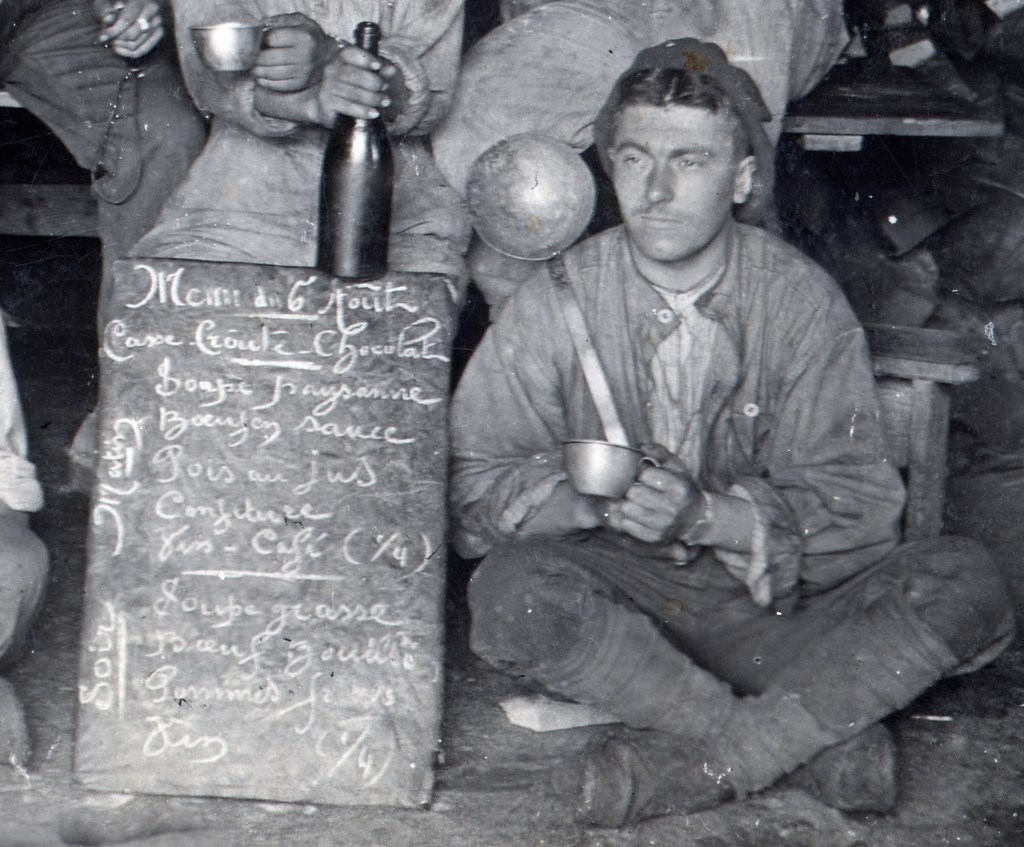 Menu du 6 Août
Casse-Croûte-Chocolat
Matin
Soupe paysanne
Boeuf en sauce
Pois au jus
Confiture
Vin - Café (1/4)
Soir
Soupe grasse
Boeuf
Pommes frites
Vin (1/4)